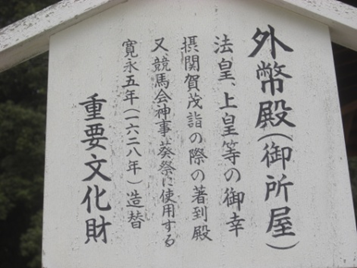 外幣殿(御所屋)
法皇、上皇等の御幸
摂関賀茂詣の際の著到殿
又競馬会神事、葵祭に使用する
寛永五年(一六二八年)造替
重要文化財